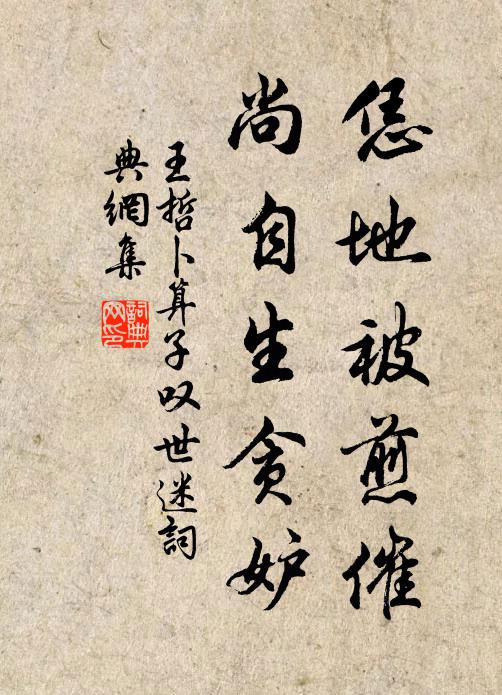 恁地被煎催
尚自生贪妒
王哲卜算子叹世迷詞
典網集
詞典网印